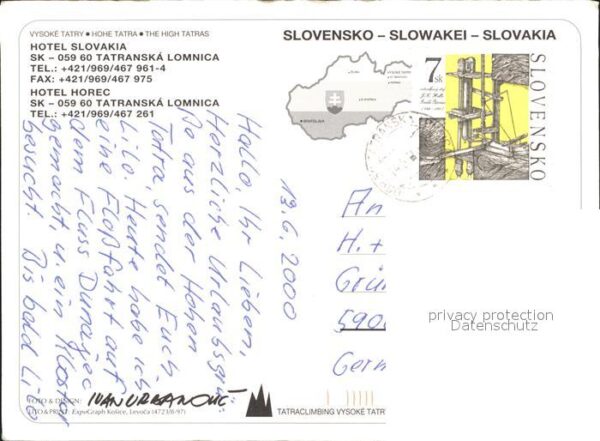 VYSOKÉ TATRY • HOHE TATRA • THE HIGH TATRAS
HOTEL SLOVAKIA
SK – 059 60 TATRANSKÁ LOMNICA
TEL.: +421/969/467 961-4
FAX: +421/969/467 975
HOTEL HOREC
SK – 059 60 TATRANSKÁ LOMNICA
TEL.: +421/969/467 261
SLOVENSKO – SLOWAKEI – SLOVAKIA
7 SK
SLOVENSKO
13.6.2000
Hallo, Ihr Lieben,
Herzliche Urlaubsgrü-
ße aus der Hohen
Tatra, sendet Euch
Lilo. Heute habe ich
eine Floßfahrt auf
dem Fluss Dunajec
gemacht, u. ein Kloster
besucht. Bis bald Lilo
An
H. +
Grün
590
Germ
privacy protection
Datenschutz
FOTO & DESIGN: IVAN URBANOVIČ
LITO & PRINT: ExpoGraph Košice, Levoča (4723/6-97)
TATRACLIMBING VYSOKÉ TATR